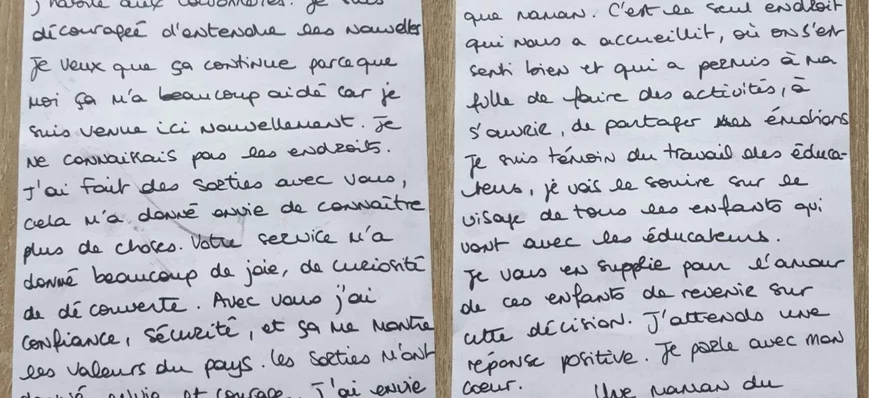 décourageé d'entendre les nouvelles
Je veux que ça continue parce que
moi ça m'a beaucoup aidé car je
suis venue ici nouvellement. Je
ne connaissais pas les endroits.
J'ai fait des sorties avec vous,
cela m'a donné envie de connaître
plus de choses. Votre service m'a
donné beaucoup de joie, de curiosité
de découverte. Avec vous j'ai
confiance, sécurité, et ça me montre
les valeurs du pays. les sorties m'ont
et courage. J'ai envie
que maman. C'est le seul endroit
qui nous a accueillit, où on s'est
senti bien et qui a permis à ma
fille de faire des activités, à
s'ouvrir, de partager ses émotions
Je suis témoin du travail des éduca-
teurs, je vois le sourire sur le
visage de tous les enfants qui
vont avec les éducateurs.
Je vous en supplie pour l'amour
de ces enfants de revenir sur
cette décision. J'attends une
réponse positive. Je parle avec mon
coeur.
Une maman du